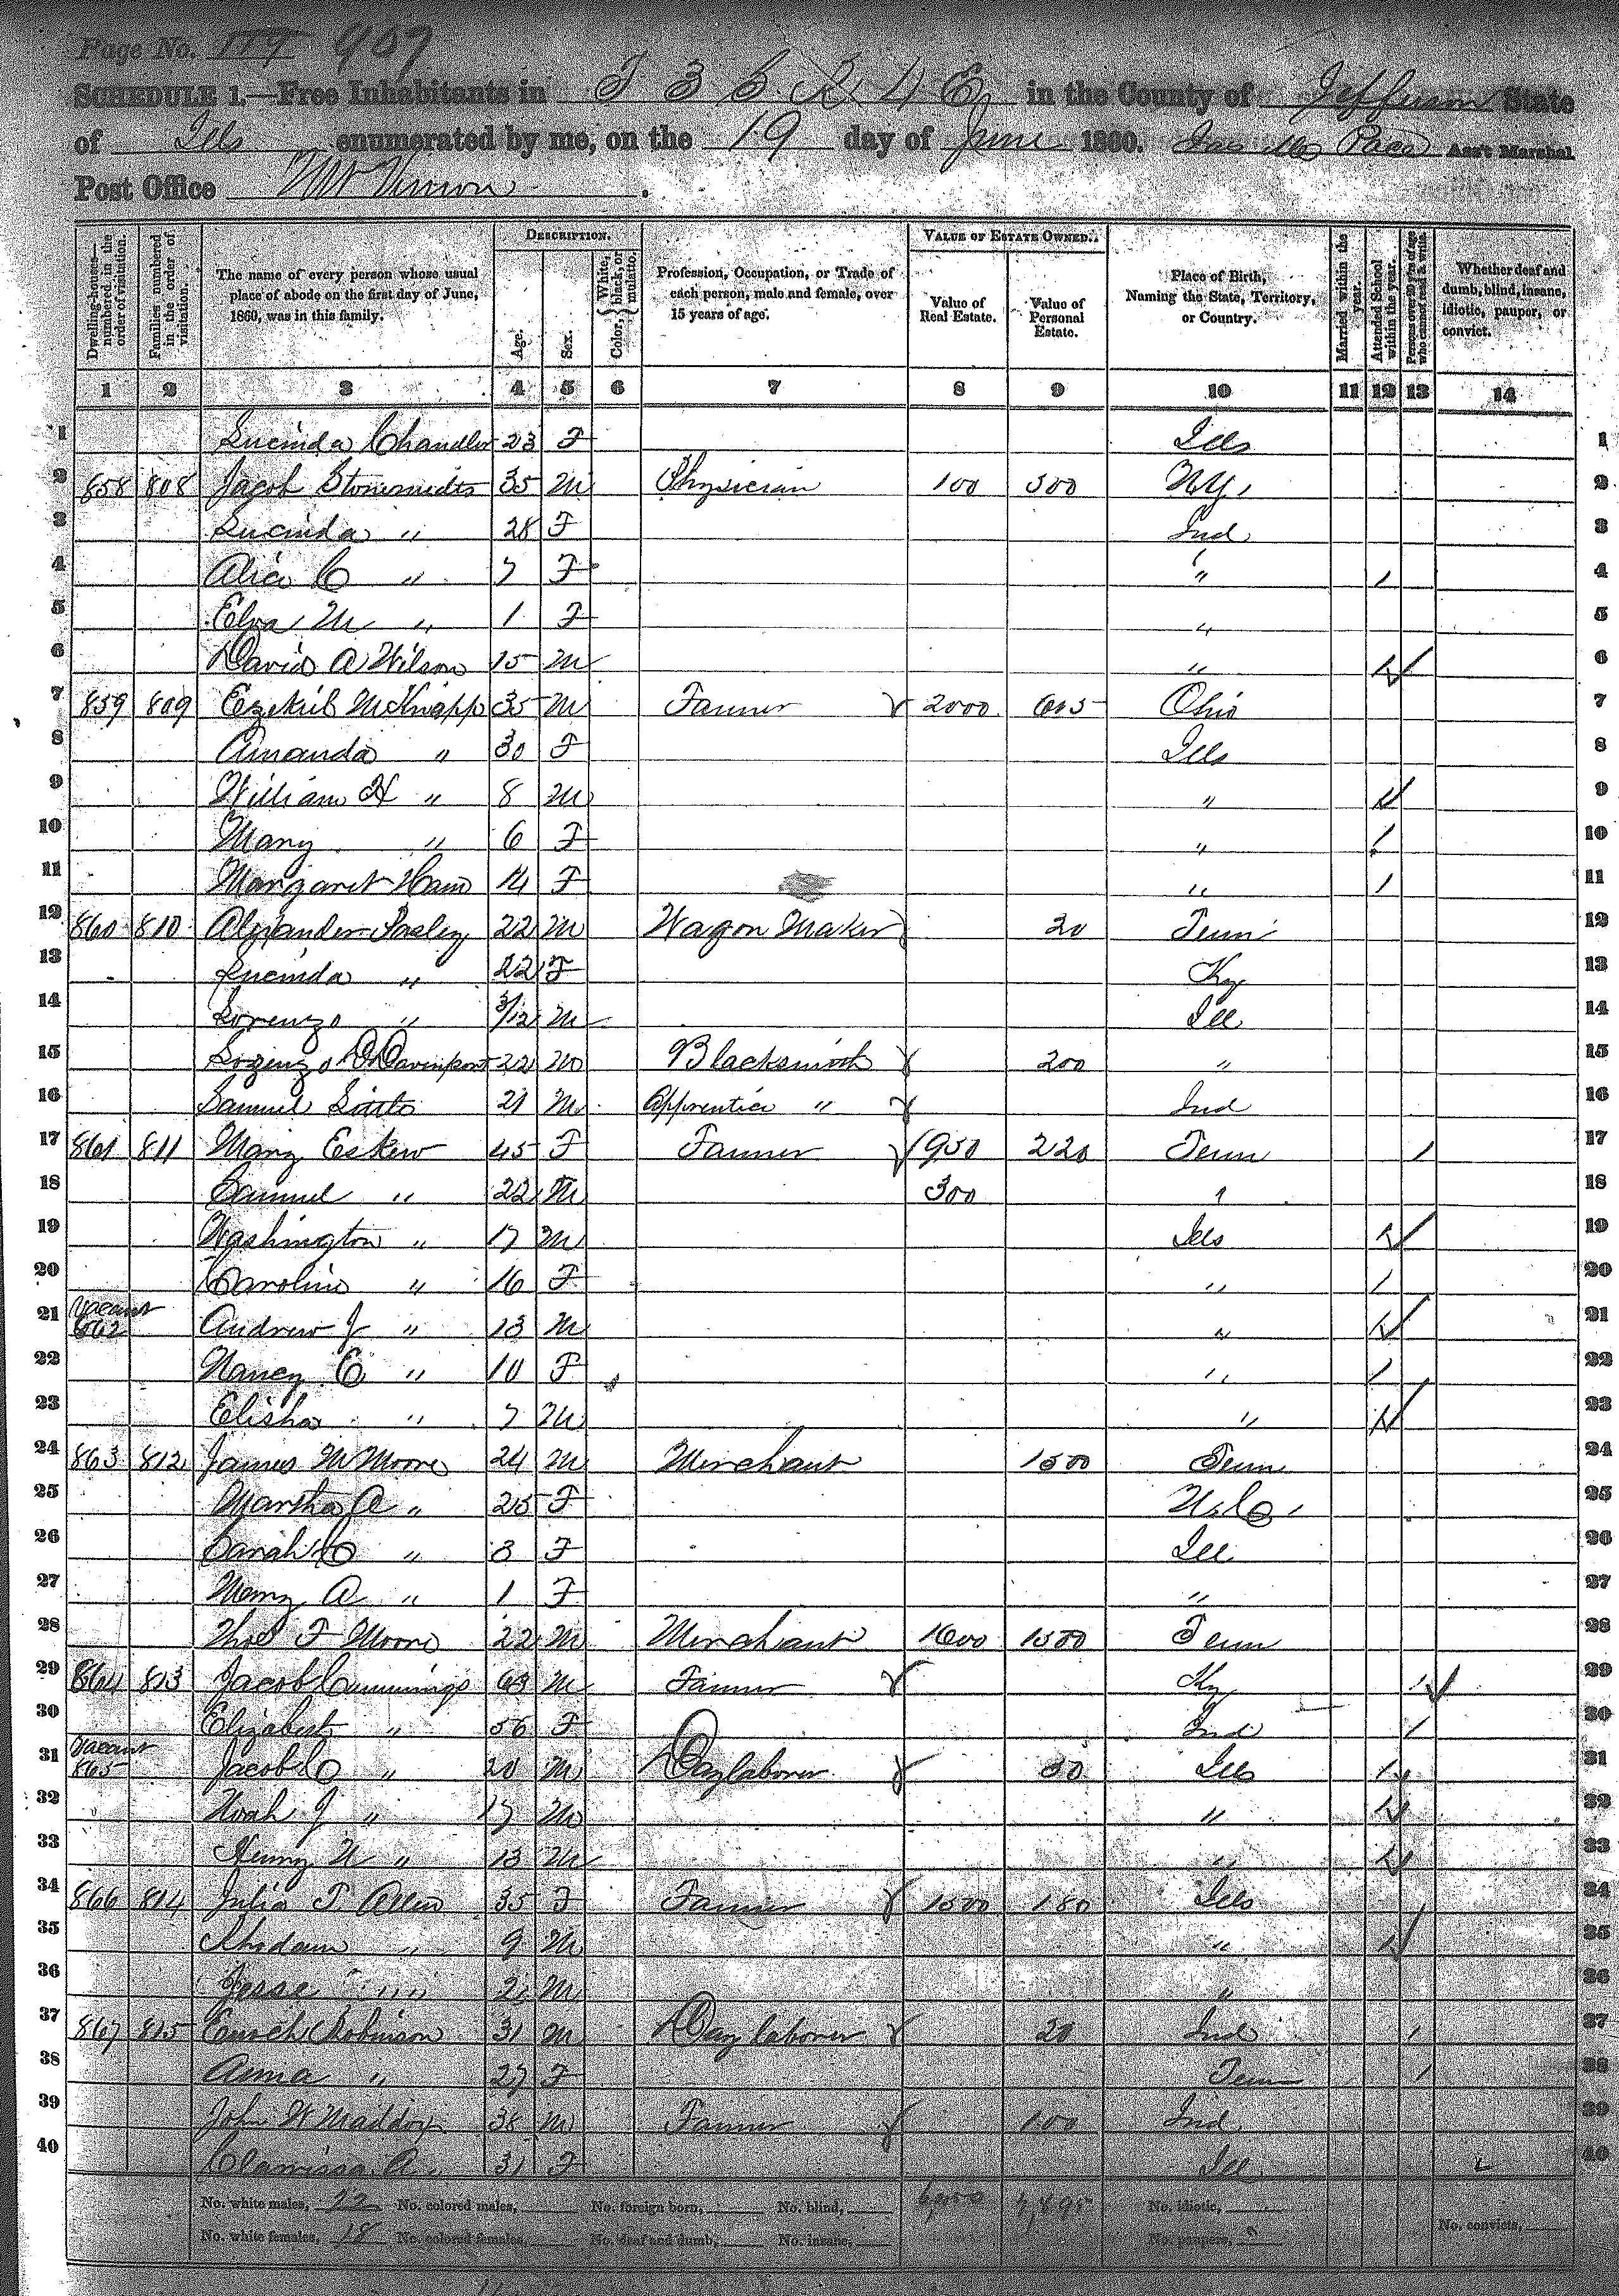 Page No. 907
SCHEDULE 1.—Free Inhabitants in T 3 S R 4 E in the County of Jefferson State
of Ills enumerated by me, on the 19 day of June 1860. Pace Ass't Marshal
Post Office Mt Vernon.
Dwelling-houses—numbered in the order of visitation. Families numbered in the order of visitation. The name of every person whose usual place of abode on the first day of June, 1860, was in this family. DESCRIPTION. Age. Sex. Color, {White, black, or mulatto.} Profession, Occupation, or Trade of each person, male and female, over 15 years of age. VALUE OF ESTATE OWNED. Value of Real Estate. Value of Personal Estate. Place of Birth, Naming the State, Territory, or Country. Married within the year. Attended School within the year. Persons over 20 y'rs of age who cannot read & write. Whether deaf and dumb, blind, insane, idiotic, pauper, or convict.
1 2 3 4 5 6 7 8 9 10 11 12 13 14
1 Lucinda Chandler 23 F Ills 1
2 858 808 Jacob 35 M Physician 100 300 2
3 Lucinda " 28 F Ind 3
4 Alice C " 7 F " / 4
5 Elva M " 1 F " 5
6 David A Wilson 15 M " / 6
7 859 809 Ezekiel McKnapp 35 M Farmer 2000 Ohio 7
8 Amanda " 30 F Ills 8
9 William H " 8 M " / 9
10 Mary " 6 F " / 10
11 Margaret Ham 14 F " / 11
12 860 810 Alexander Pasley 22 M Wagon Maker 20 Tenn 12
13 Lucinda " 22 F Ky 13
14 Lorenzo " 3/12 M Ill 14
15 Davinport 22 M Blacksmith 200 " 15
16 Samuel 21 M Apprentice " Ind 16
17 861 811 Mary Eskew 45 F Farmer 950 220 Tenn / 17
18 Samuel " 22 M 300 " 18
19 Washington " 17 M Ills / 19
20 Caroline " 16 F " / 20
21 Vacant 862 Andrew J " 13 M " / 21
22 Nancy E " 10 F " / 22
23 Elisha " 7 M " / 23
24 863 812 James M Moore 24 M Merchant 1500 Tenn 24
25 Martha A " 25 F N.C. 25
26 Sarah C " 3 F Ill 26
27 Mary A " 1 F " 27
28 Thos F Moore 22 M Merchant 1600 1500 Tenn 28
29 864 813 Jacob Cummings 63 M Farmer Ky / 29
30 Elizabeth " 56 F Ind / 30
31 Vacant 865 Jacob C " 20 M Day laborer 50 Ills / 31
32 Noah J " 17 M " / 32
33 Henry " 13 M " / 33
34 866 814 Julia T. Allen 35 F Farmer 1500 180 Ills 34
35 " 9 M " / 35
36 Jesse " 2 M " 36
37 867 815 Enoch Robinson 31 M Day laborer 20 Ind / 37
38 Anna " 27 F Tenn / 38
39 John W Maddox 38 M Farmer 100 Ind 39
40 Clarrissa A. 31 F Ill 40
No. white males, 22 No. colored males, No. foreign born, No. blind, No. idiotic,
No. white females, 18 No. colored females, No. deaf and dumb, No. insane, No. paupers, No. convicts,